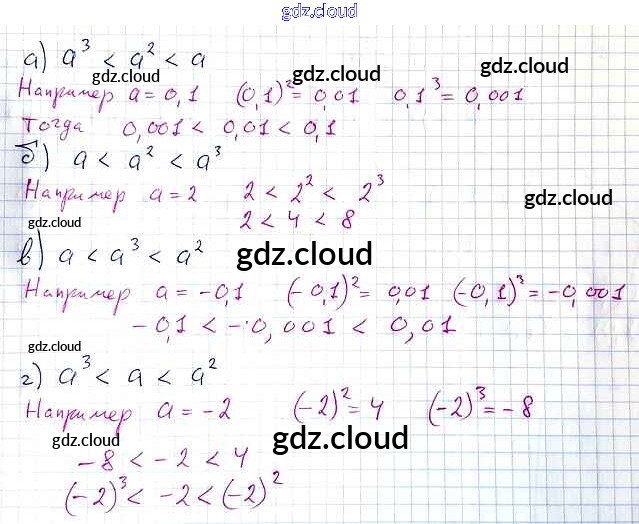 gdz.cloud
а) a³ < a² < a
gdz.cloud
gdz.cloud
Например a = 0,1 (0,1)² = 0,01 0,1³ = 0,001
gdz.cloud
Тогда 0,001 < 0,01 < 0,1
б) a < a² < a³
Например a = 2 2 < 2² < 2³
gdz.cloud
2 < 4 < 8
gdz.cloud
в) a < a³ < a²
gdz.cloud
Например a = -0,1 (-0,1)² = 0,01 (-0,1)³ = -0,001
-0,1 < -0,001 < 0,01
gdz.cloud
г) a³ < a < a²
gdz.cloud
Например a = -2 (-2)² = 4 (-2)³ = -8
gdz.cloud
gdz.cloud
-8 < -2 < 4
(-2)³ < -2 < (-2)²